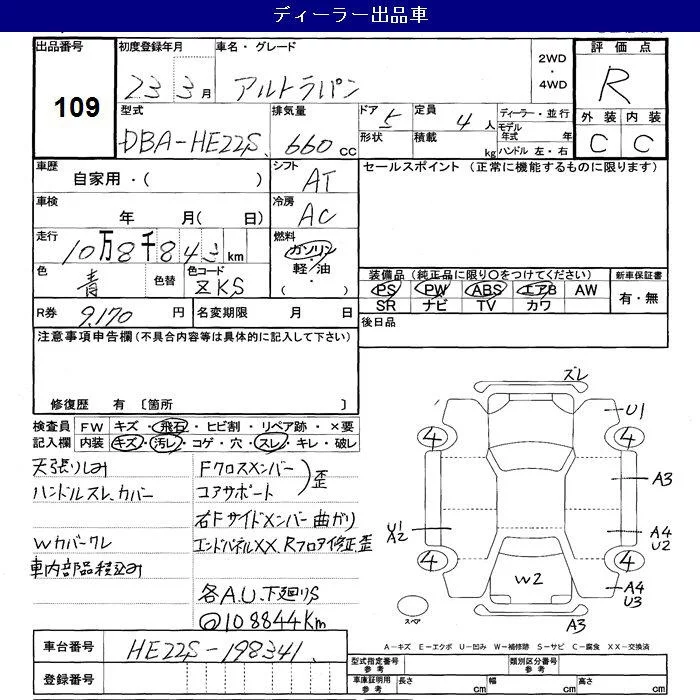 ディーラー出品車
出品番号 初度登録年月 車名・グレード 2WD ・ 4WD 評価点
109 23 3月 アルトラパン R
型式 排気量 ドア 5 定員 4人 ディーラー・並行 外装 内装
DBA-HE22S 660 cc 形状 積載 kg モデル年式 年 ハンドル 左・右 C C
車歴 シフト セールスポイント (正常に機能するものに限ります)
自家用・( ) AT
車検 冷房
年 月( 日) AC
走行 燃料
10万8千84 km ガソリン
色 色替 色コード 軽油 装備品 (純正品に限り○をつけてください) 新車保証書
青 ZKS ・( ) PS PW ABS エアB AW 有・無
SR ナビ TV カワ
R券 9,170 円 名変期限 月 日 後日品
注意事項申告欄(不具合内容等は具体的に記入して下さい)
修復歴 有 〔箇所 〕
検査員 FW キズ・飛石・ヒビ割・リペア跡・×要
記入欄 内装 キズ・汚レ・コゲ・穴・スレ・キレ・破レ
天張りしみ
ハンドルスレ、カバー
Wカバークレ
車内部品積込み
Fクロスメンバー
コアサポート 歪
右Fサイドメンバー曲ガリ
エンドパネルXX、Rフロア修正歪
各A.U.下廻りS
108844Km
ズレ
U1
4 4
A3
U1 A4
A2 U2
4 4
W2
A4
U3
スペア A3
A-キズ E-エクボ U-凹み W-補修跡 S-サビ C-腐食 XX-交換済
車台番号 HE22S-198341
登録番号
型式指定番号 参考 類別区分番号 参考
車庫証明用 参考 長さ cm 幅 cm 高さ cm